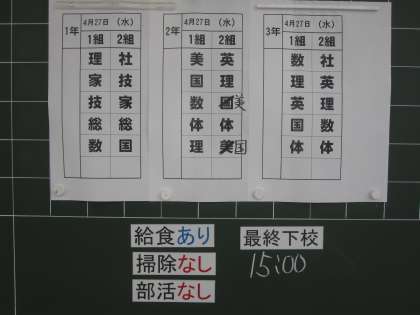 1年 4月27日 (水)
1組 2組
理 社
家 英
技 家
総 総
数 国
2年 4月27日 (水)
1組 2組
美 英
国 理
数 国美
体 体
理 美国
3年 4月27日 (水)
1組 2組
数 社
理 英
英 理
国 数
体 体
給食あり
掃除なし
部活なし
最終下校
15:00